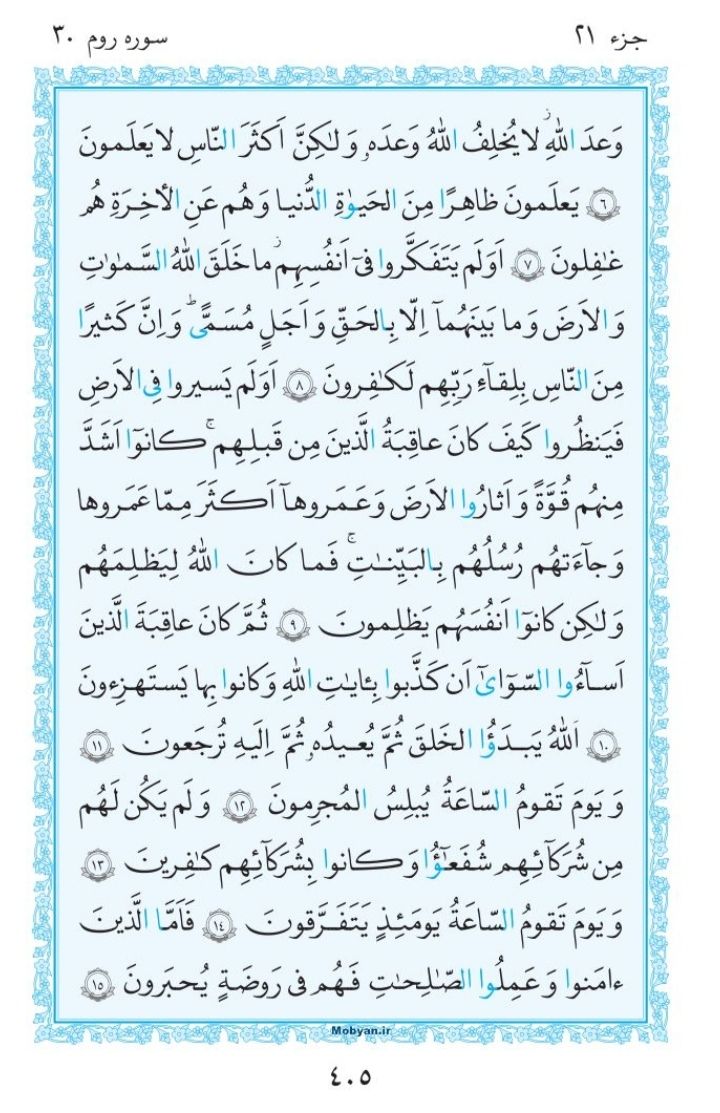 جزء ٢١
سوره روم ٣٠
وَعدَ اللّٰهِ ۖ لا يُخلِفُ اللّٰهُ وَعدَهٗ وَ لٰكِنَّ اَكثَرَ النّاسِ لا يَعلَمونَ
﴿٦﴾ يَعلَمونَ ظاهِرًا مِنَ الحَيوٰةِ الدُّنيا وَ هُم عَنِ الأخِرَةِ هُم
غٰفِلونَ ﴿٧﴾ اَوَلَم يَتَفَكَّروا فىٓ اَنفُسِهِم ۗ ما خَلَقَ اللّٰهُ السَّمٰوٰتِ
وَ الاَرضَ وَ ما بَينَهُمآ اِلّا بِالحَقِّ وَ اَجَلٍ مُسَمًّى ۗ وَ اِنَّ كَثيرًا
مِنَ النّاسِ بِلِقآءِ رَبِّهِم لَكٰفِرونَ ﴿٨﴾ اَوَلَم يَسيروا فِى الاَرضِ
فَيَنظُروا كَيفَ كانَ عاقِبَةُ الَّذينَ مِن قَبلِهِم ۚ كانوٓا اَشَدَّ
مِنهُم قُوَّةً وَ اَثارُوا الاَرضَ وَ عَمَروهآ اَكثَرَ مِمّا عَمَروها
وَ جآءَتهُم رُسُلُهُم بِالبَيِّنٰتِ ۚ فَما كانَ اللّٰهُ لِيَظلِمَهُم
وَ لٰكِن كانوٓا اَنفُسَهُم يَظلِمونَ ﴿٩﴾ ثُمَّ كانَ عاقِبَةَ الَّذينَ
اَسآءُوا السّوٓاىٰٓ اَن كَذَّبوا بِـٔايٰتِ اللّٰهِ وَ كانوا بِها يَستَهزِءونَ
﴿١٠﴾ اَللّٰهُ يَبدَؤُا الخَلقَ ثُمَّ يُعيدُهٗ ثُمَّ اِلَيهِ تُرجَعونَ ﴿١١﴾
وَ يَومَ تَقومُ السّاعَةُ يُبلِسُ المُجرِمونَ ﴿١٢﴾ وَ لَم يَكُن لَهُم
مِن شُرَكآئِهِم شُفَعٰٓؤُا وَ كانوا بِشُرَكآئِهِم كٰفِرينَ ﴿١٣﴾
وَ يَومَ تَقومُ السّاعَةُ يَومَئِذٍ يَتَفَرَّقونَ ﴿١٤﴾ فَاَمَّا الَّذينَ
ءامَنوا وَ عَمِلُوا الصّٰلِحٰتِ فَهُم فى رَوضَةٍ يُحبَرونَ ﴿١٥﴾
Mobyan.ir
٤٠٥